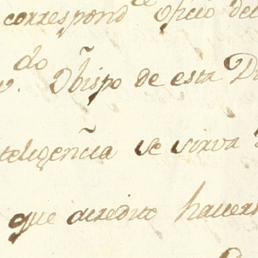 correspond^te oficio del
v.^do Obĩspo de esta D
nteligen̄cia se sirva
que acredite haver